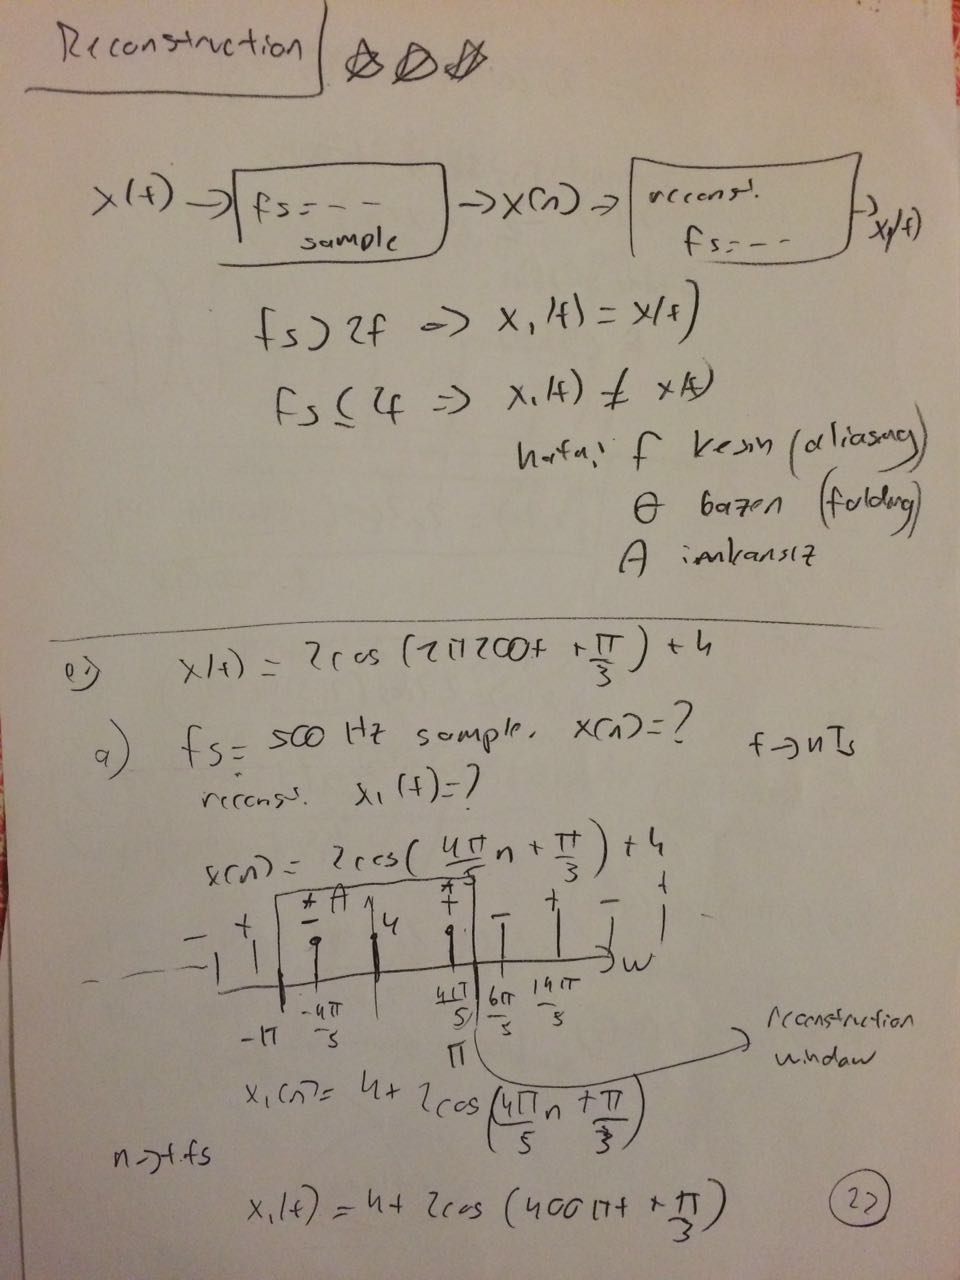 Reconstruction
x(t) → fs = - - sample → x(n) → reconst. fs = - - → x₁(t)
fs > 2f => x₁(t) = x(t)
fs ≤ 2f => x₁(t) ≠ x(t)
hata: f kesin (aliasing)
θ bazen (folding)
A imkansız
x(t) = 2cos(2π200t + π/3) + 4
a) fs = 500 Hz sample. x(n) = ? t → nTs
reconst. x₁(t) = ?
x(n) = 2cos(4π/5 n + π/3) + 4
* A *
- + - 4 + - + - +
w
-π -4π/5 4π/5 π 6π/5 14π/5
reconstruction
window
x₁(n) = 4 + 2cos(4π/5 n + π/3)
n → t.fs
x₁(t) = 4 + 2cos(400πt + π/3)